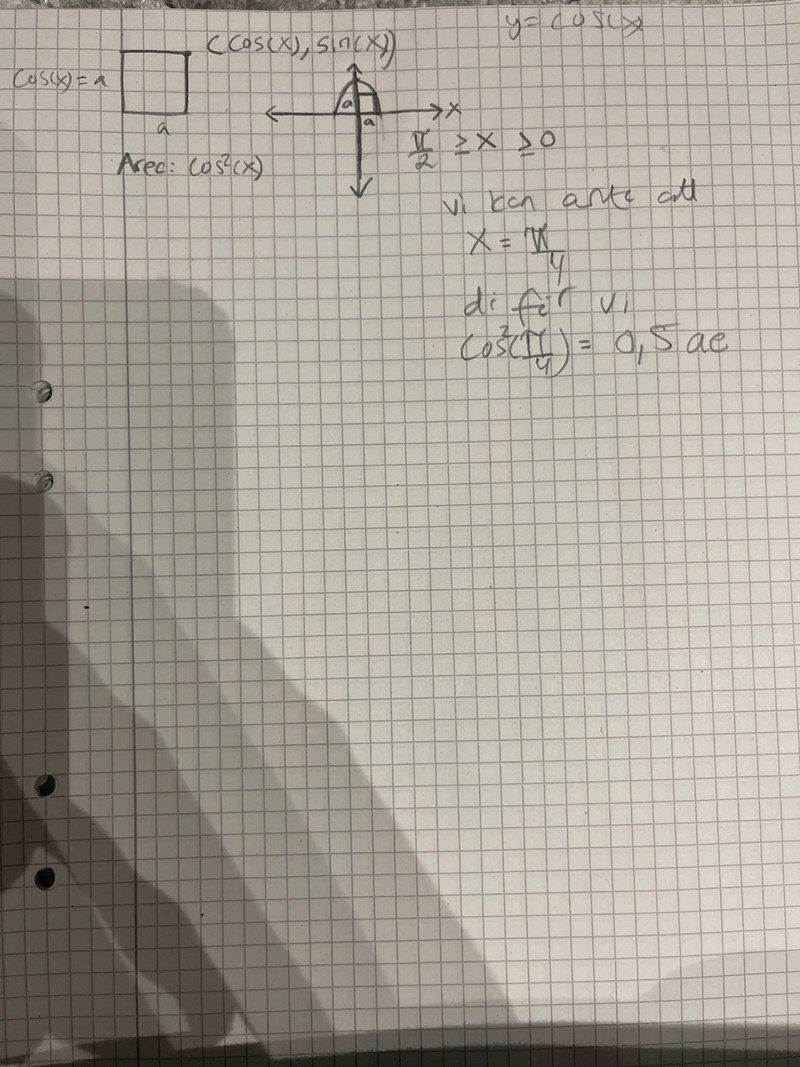 y = cos(x)
(cos(x), sin(x))
cos(x) = a
a
Area: cos²(x)
a
a
x
π/2 ≥ x ≥ 0
vi kan anta att
x = π/4
då får vi
cos²(π/4) = 0,5 ae